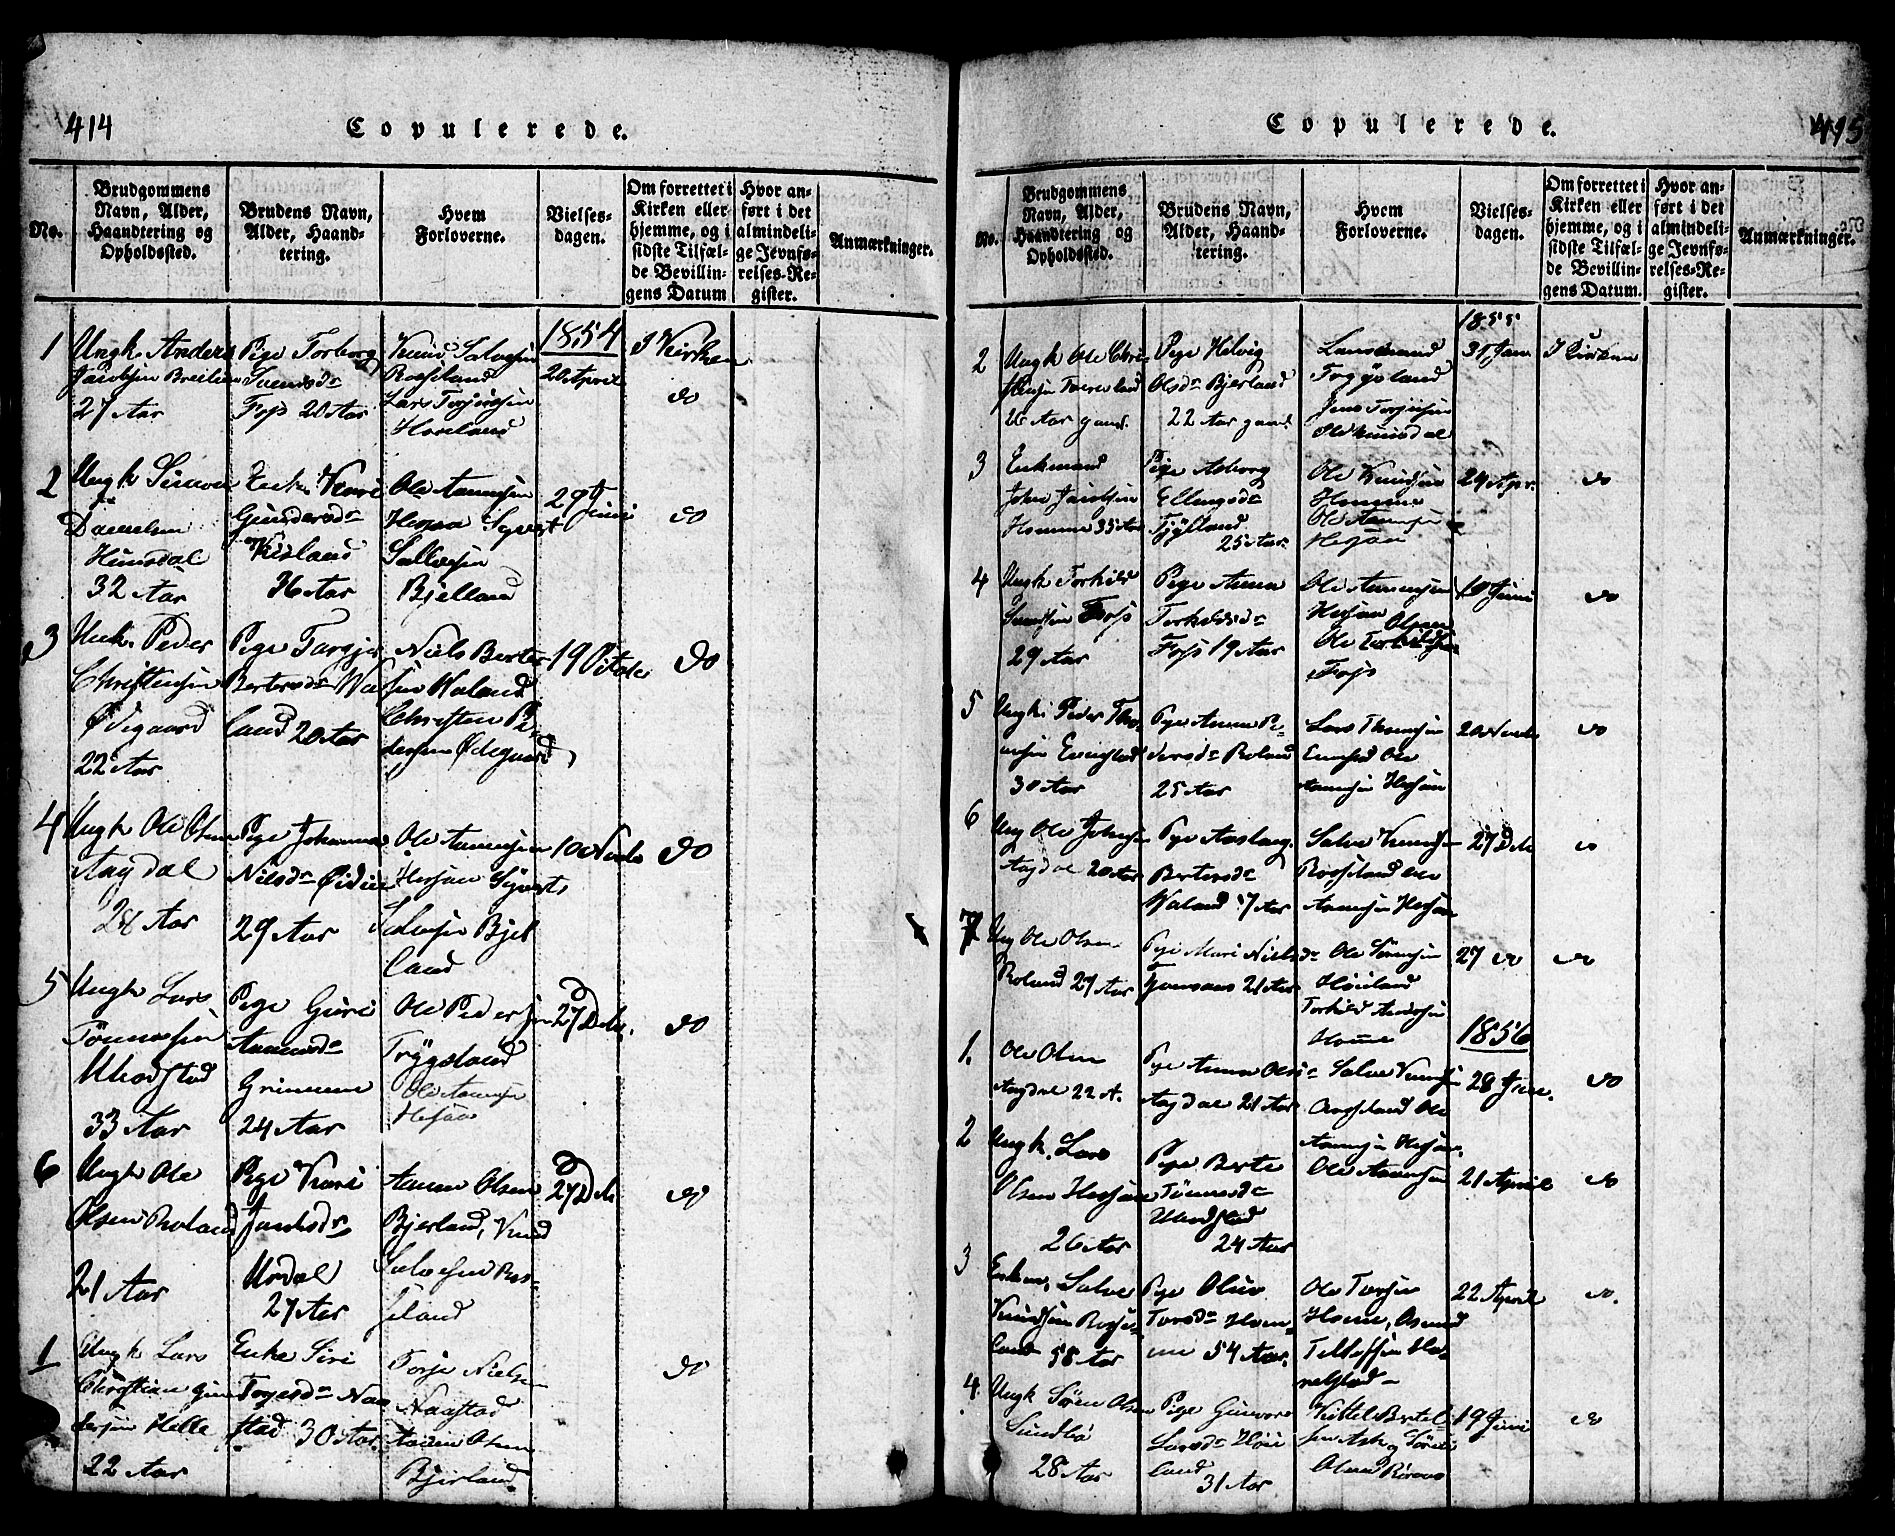 414
Copulerede.
No.
Brudgommens
Navn, Alder,
Haandtering og
Opholdssted.
Brudens Navn,
Alder, Haand-
tering.
Hvem
Forloverne.
Vielses-
dagen.
Om forrettet i
Kirken eller
hjemme, og i
sidste Tilfæl-
de Bevillin-
gens Datum
Hvor an-
ført i det
almindeli-
ge Jevnfø-
relses-Re-
gister.
Anmærkninger.
1
Ungk. Anders
Jacobsen
27 Aar
Pige Torborg
Foss 20 Aar
Knud Salvesen
Roseland
Lars Torjusen
Hoveland
1854
20 April
I Kirken
do
2
Ungk Simon
Danielsen
Heimsdal
32 Aar
Enke Kari
Gundersdr
36 Aar
Ole Aanensen
Hesjaa Syvert
Sallvesen
Bjelland
29 Juni
do
3
Ungk. Peder
Christensen
Ødegaard
22 Aar
Pige Targjer
Bertesdr Wa
land 20 Aar
Niels Berte
sen Waland
Christen Pe
dersen Ødegaard
19 Octobr
do
4
Ungk Ole Olsen
Aagdal
28 Aar
Pige Johanne
Nielsdr
29 Aar
Ole Aanensen
Hesjaa Syvert
Salvesen Bjel
land
10 Novbr
do
5
Ungk Lars
Tønnesen
33 Aar
Pige Guri
Aanensdr
Grimme
24 Aar
Ole Pedersen
Trygsland
Ole Aanensen
Hesjaa
27 Decbr.
do
6
Ungk Ole
Olsen Roland
21 Aar
Pige Kari
Jacobsdr
Urdal
27 Aar
Aanen Olsen
Bjerland, Knud
Salvesen Ros-
seland
27 Dcbr
do
1
Ungk Lars
Christian Gun
dersen Helle
22 Aar
Enke Siri
Torjesdr Naa
stad 30 Aar
Torje Nielsen
Naastad
Aanen Olsen
Bjerland.
do
415
Copulerede.
No.
Brudgommens
Navn, Alder,
Haandtering og
Opholdssted.
Brudens Navn,
Alder, Haand-
tering.
Hvem
Forloverne.
Vielses-
dagen.
Om forrettet i
Kirken eller
hjemme, og i
sidste Tilfæl-
de Bevillin-
gens Datum.
Hvor an-
ført i det
almindeli-
ge Jevnfø-
relses-Re-
gister.
Anmærkninger.
2
Ungk Ole Chri
stensen
26 Aar gaml.
Pige Helvig
Olsdr Bjerland
22 Aar gaml
Jens Torjusen
1855
31 Jan
I Kirken
3
Enkemand
John Jacobsen
Homme 35 Aar
Pige Asborg
Ellingsdr
25 Aar
Ole Knudsen
Homme
Ole Aanensen
Hesjaa
29 Apr.
do
4
Ungk Torkild
Foss
29 Aar
Pige Anna
Torkildsdr
Foss 19 Aar
Ole Aanensen
Hesjaa
Olsen
Ole Torkildsen
Foss
10 Juni
do
5
Ungk. Peder Tho-
30 Aar
Pige Anne Pe-
dersdr Roland
25 Aar
Lars Thomsen
Ole
Aanensen Hesjaa
20 Novbr
do
6
Ung Ole Johnsen
Aagdal 20 Aar
Pige Aasborg
Bertesdr
Waland 17 Aar
Salve Knudsen
Rosseland Ole
Aanensen Hesjaa
27 Dcb
do
7
Ung Ole Olsen
Roland 27 Aar
Pige Mari Nielsdr
21 Aar
Ole Tønnesen
Høiland
Torkild
Homme
27 do
do
1.
Ole Olsen
Aagdal 22 A.
Pige Anna Olsdr
Aagdal 21 Aar
Salve Knudsen
Rosseland Ole
Aanensen Hesjaa.
1856
28
do
2
Ungk. Lars
Olsen Hesjaa
26 Aar
Pige Berte
Tønnesdr
24 Aar
Ole Aanensen
21 April
do
3
Enkem. Salve
Knudsen Rosse-
land 58 Aar
Pige Oline
Torsdr Hom-
me 54 Aar.
Ole Torsen
Home, Osmund
Tellefsen
22 April
do.
4.
Ungk Søren Olsen
Sundbø
28 Aar
Pige Gunvor
Larsdr Høi
land
31 Aar
Kittel Bertel-
sen Ask og Søren
Olsen
19 Juni
do